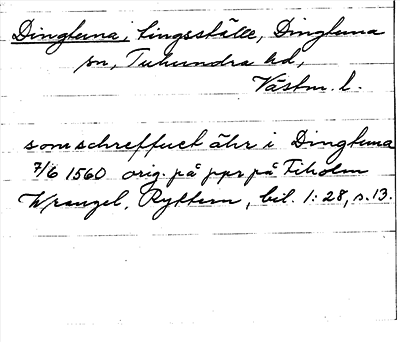 Dingtuna, tingsställe, Dingtuna
sn, Tuhundra hd,
Västm. l.
som schreffuet ähr i Dingtuna
7/6 1560 orig. på ppr på Fiholm
Wrangel, Ryttern, bil. 1:28, s. 13.